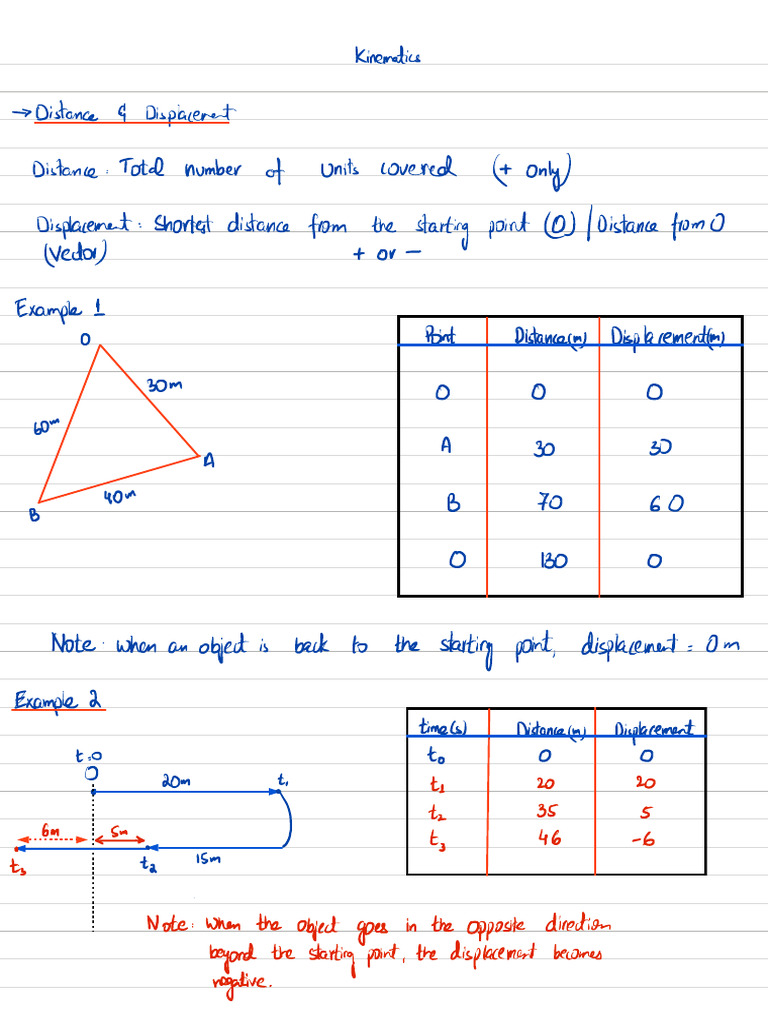 Kinematics
→ Distance & Displacement
Distance: Total number of units covered (+ only)
Displacement: Shortest distance from the starting point (O) | Distance from O
(Vector) + or -
Example 1
O
30m
60m
A
40m
B
Point Distance(m) Displacement(m)
O 0 0
A 30 30
B 70 60
O 130 0
Note: when an object is back to the starting point, displacement = 0 m
Example 2
t=0
O
20m
t₁
6m
5m
t₃
t₂
15m
time(s) Distance(m) Displacement
t₀ 0 0
t₁ 20 20
t₂ 35 5
t₃ 46 -6
Note: When the object goes in the opposite direction
beyond the starting point, the displacement becomes
negative.